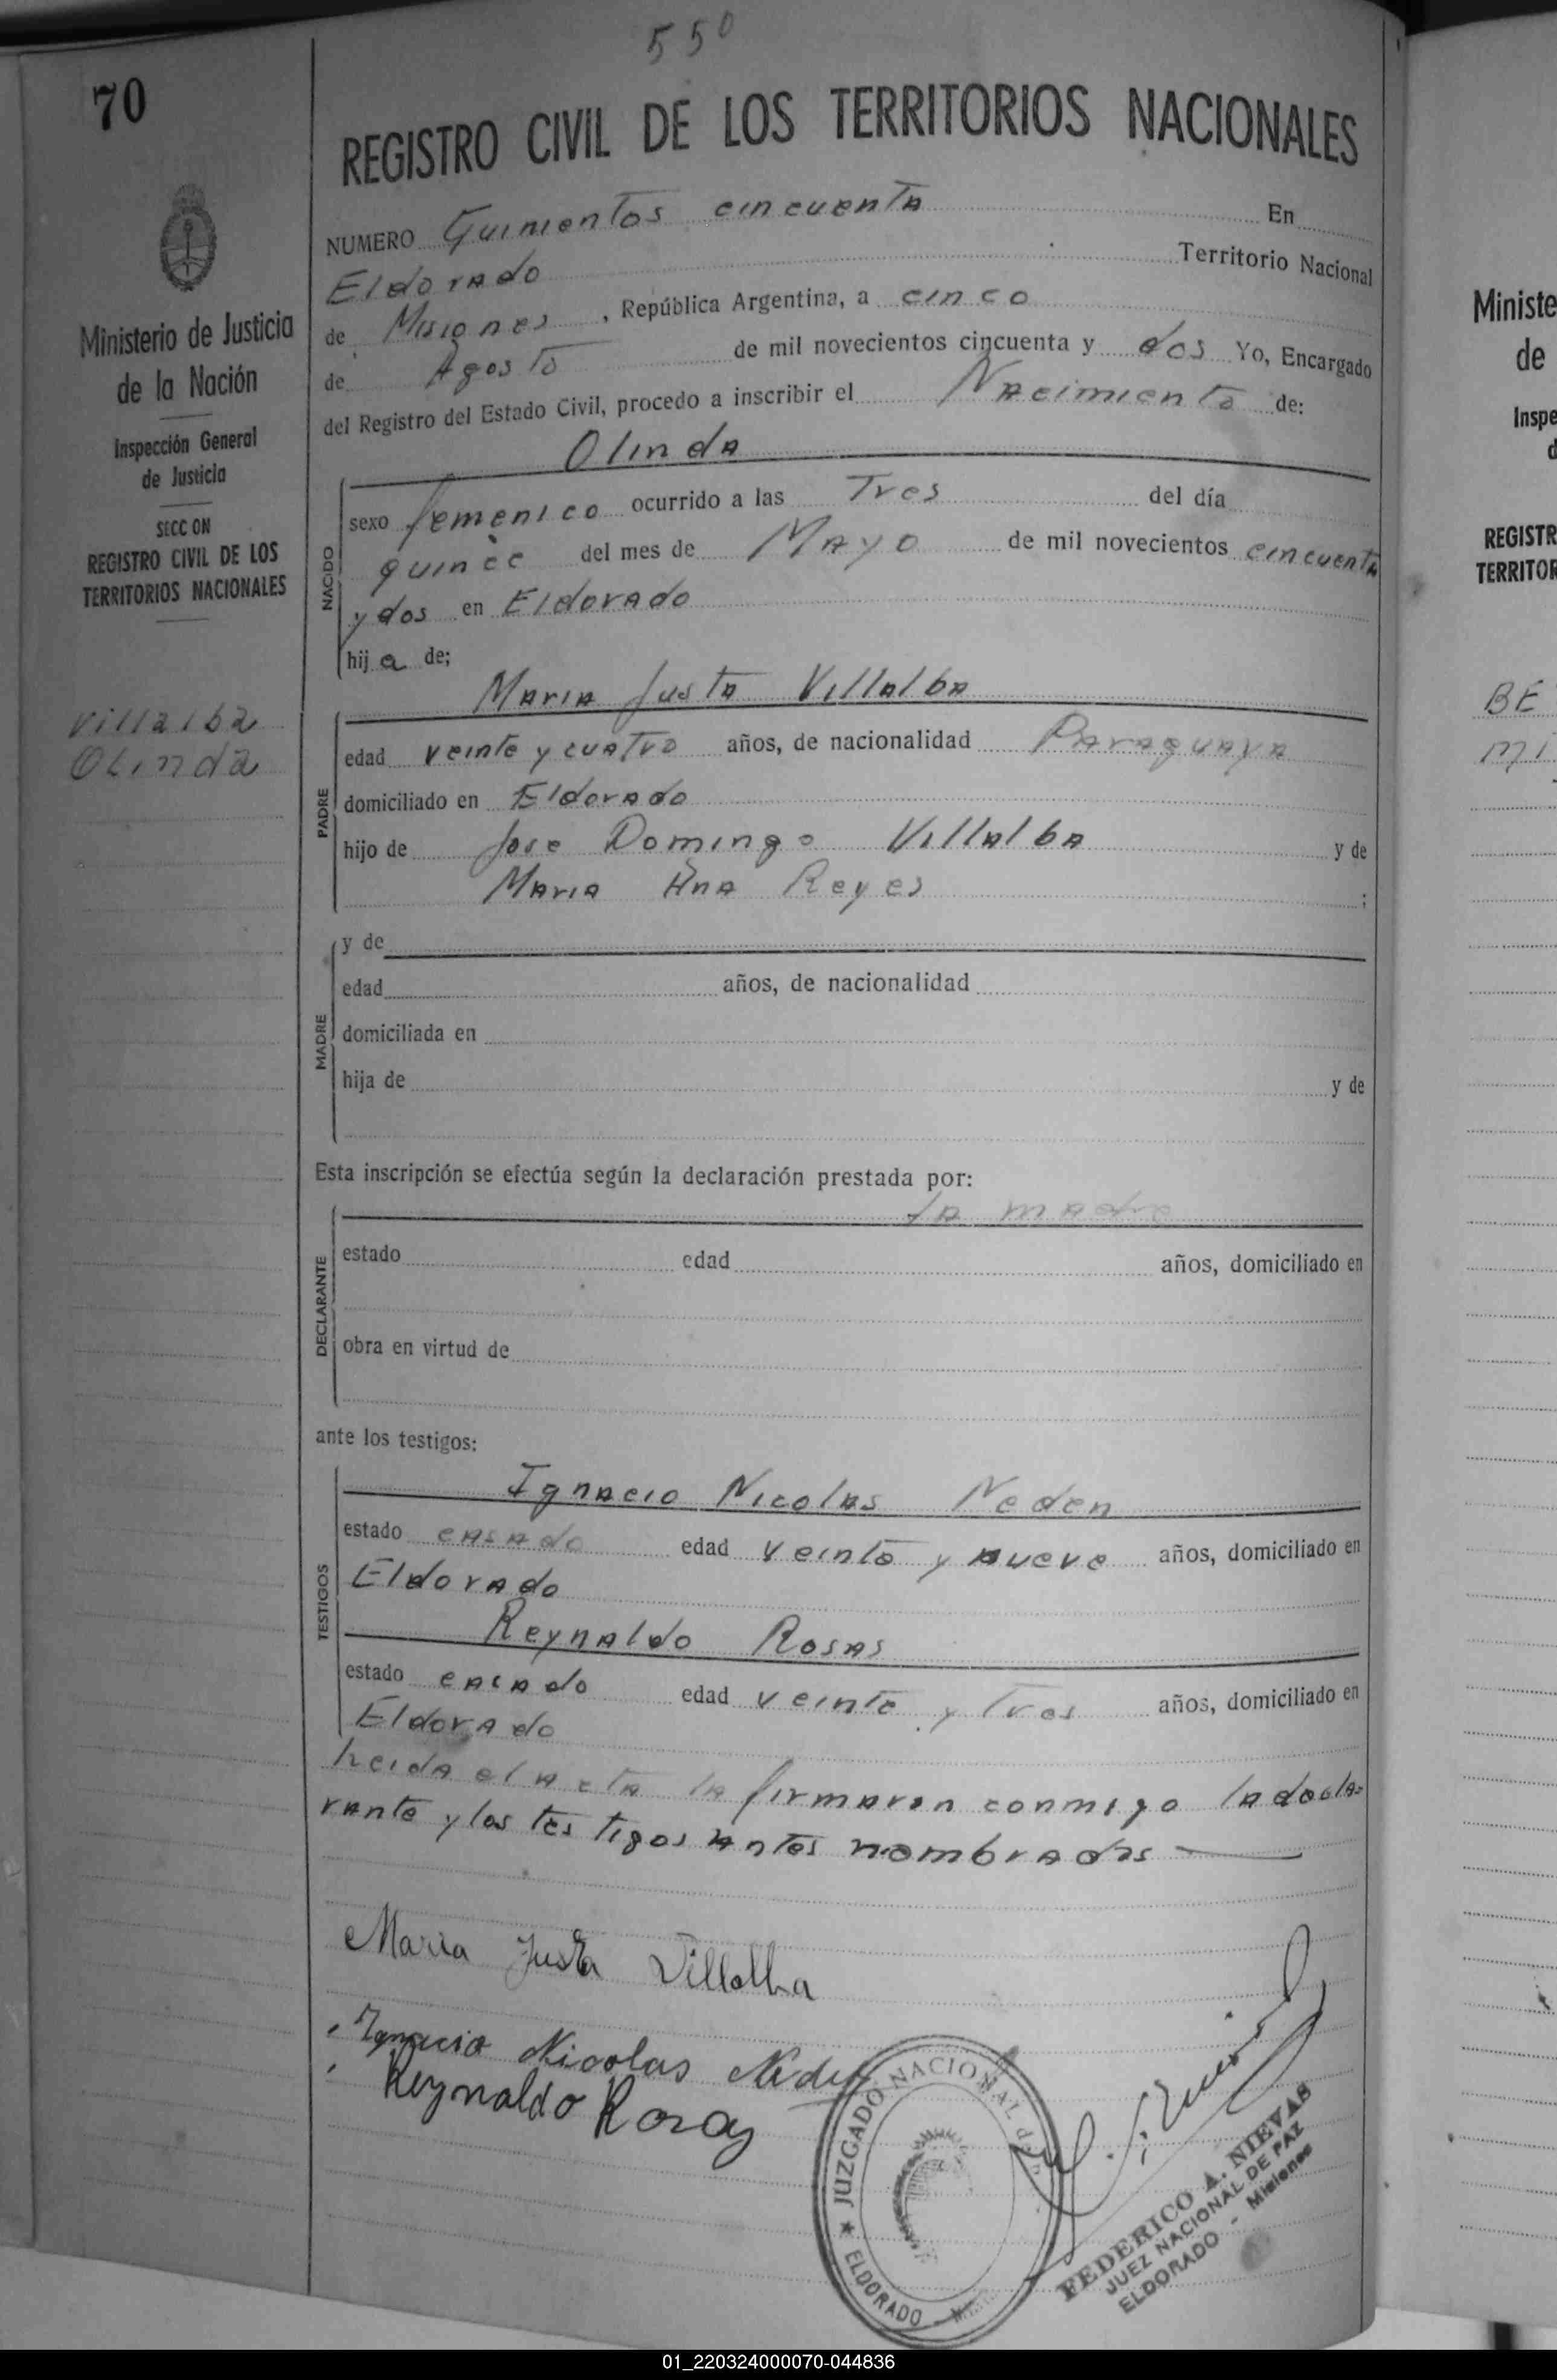 550
70
REGISTRO CIVIL DE LOS TERRITORIOS NACIONALES
NUMERO Quinientos cincuenta En
Eldorado Territorio Nacional
de Misiones, República Argentina, a cinco
de Agosto de mil novecientos cincuenta y dos Yo, Encargado
del Registro del Estado Civil, procedo a inscribir el Nacimiento de:
Olinda
NACIDO
sexo femenico ocurrido a las Tres del día
quince del mes de Mayo de mil novecientos cincuenta
y dos en Eldorado
hij a de;
Maria Justa Villalba
PADRE
edad veinte y cuatro años, de nacionalidad Paraguaya
domiciliado en Eldorado
hijo de Jose Domingo Villalba y de
Maria Ana Reyes ;
MADRE
y de
edad años, de nacionalidad
domiciliada en
hija de y de
Esta inscripción se efectúa según la declaración prestada por:
la madre
DECLARANTE
estado edad años, domiciliado en
obra en virtud de
ante los testigos:
TESTIGOS
Ignacio Nicolas Neden
estado casado edad veinte y nueve años, domiciliado en
Eldorado
Reynaldo Rosas
estado casado edad veinte y Tres años, domiciliado en
Eldorado
Leida el acta la firmaron conmigo la decla=
rante y los testigos antes nombrados
Maria Justa Villalba
Ignacio Nicolas
Reynaldo Rosas
JUZGADO NACIONAL de
★ ELDORADO
FEDERICO A. NIEVAS
JUEZ NACIONAL DE PAZ
ELDORADO - Misiones
Ministerio de Justicia
de la Nación
Inspección General
de Justicia
SECC ON
REGISTRO CIVIL DE LOS
TERRITORIOS NACIONALES
Villalba
Olinda
Ministe
de
Inspe
d
REGISTR
TERRITOR
BE
MI
01_220324000070-044836